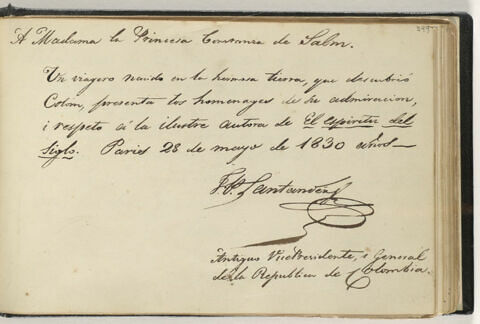 A Madama la Princesa Constanza de Salm.
Un viagero nacido en la hermosa tierra, que descubrió
Colom, presenta los homenages de su admiracion,
i respeto á la ilustre autora de El espiritu del
Siglo. Paris 28 de mayo de 1830 años—
F. P. Santander
Antiguo VicePresidente, i General
de la Republica de Colombia.